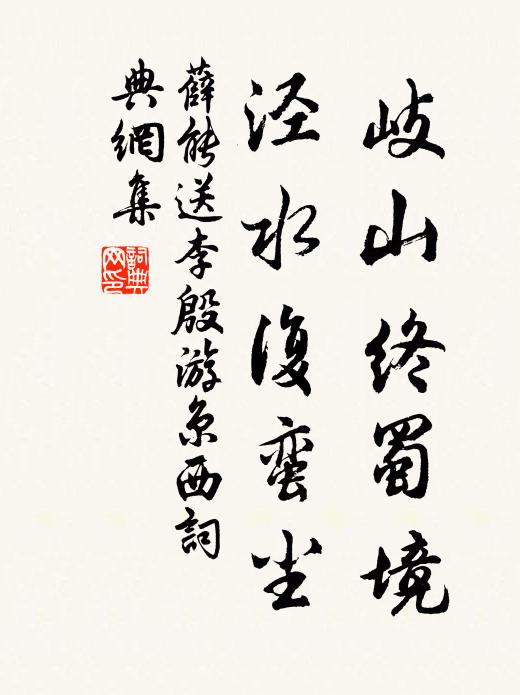 岐山終蜀境
泾水復蠻尘
薛能送李殷游京西詞
典網集
詞典
网印